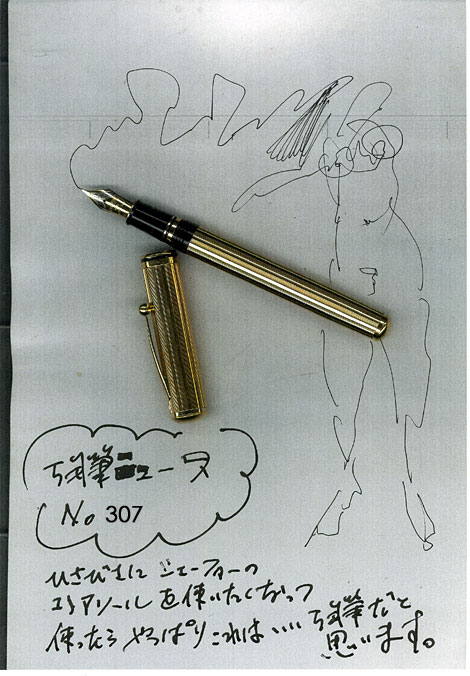 万年筆ニュース
No 307
ひさびさに シェーファーの
コノアソールを使いたくなって
使ったら やっぱり これは‥‥ 万年筆だと
思います。